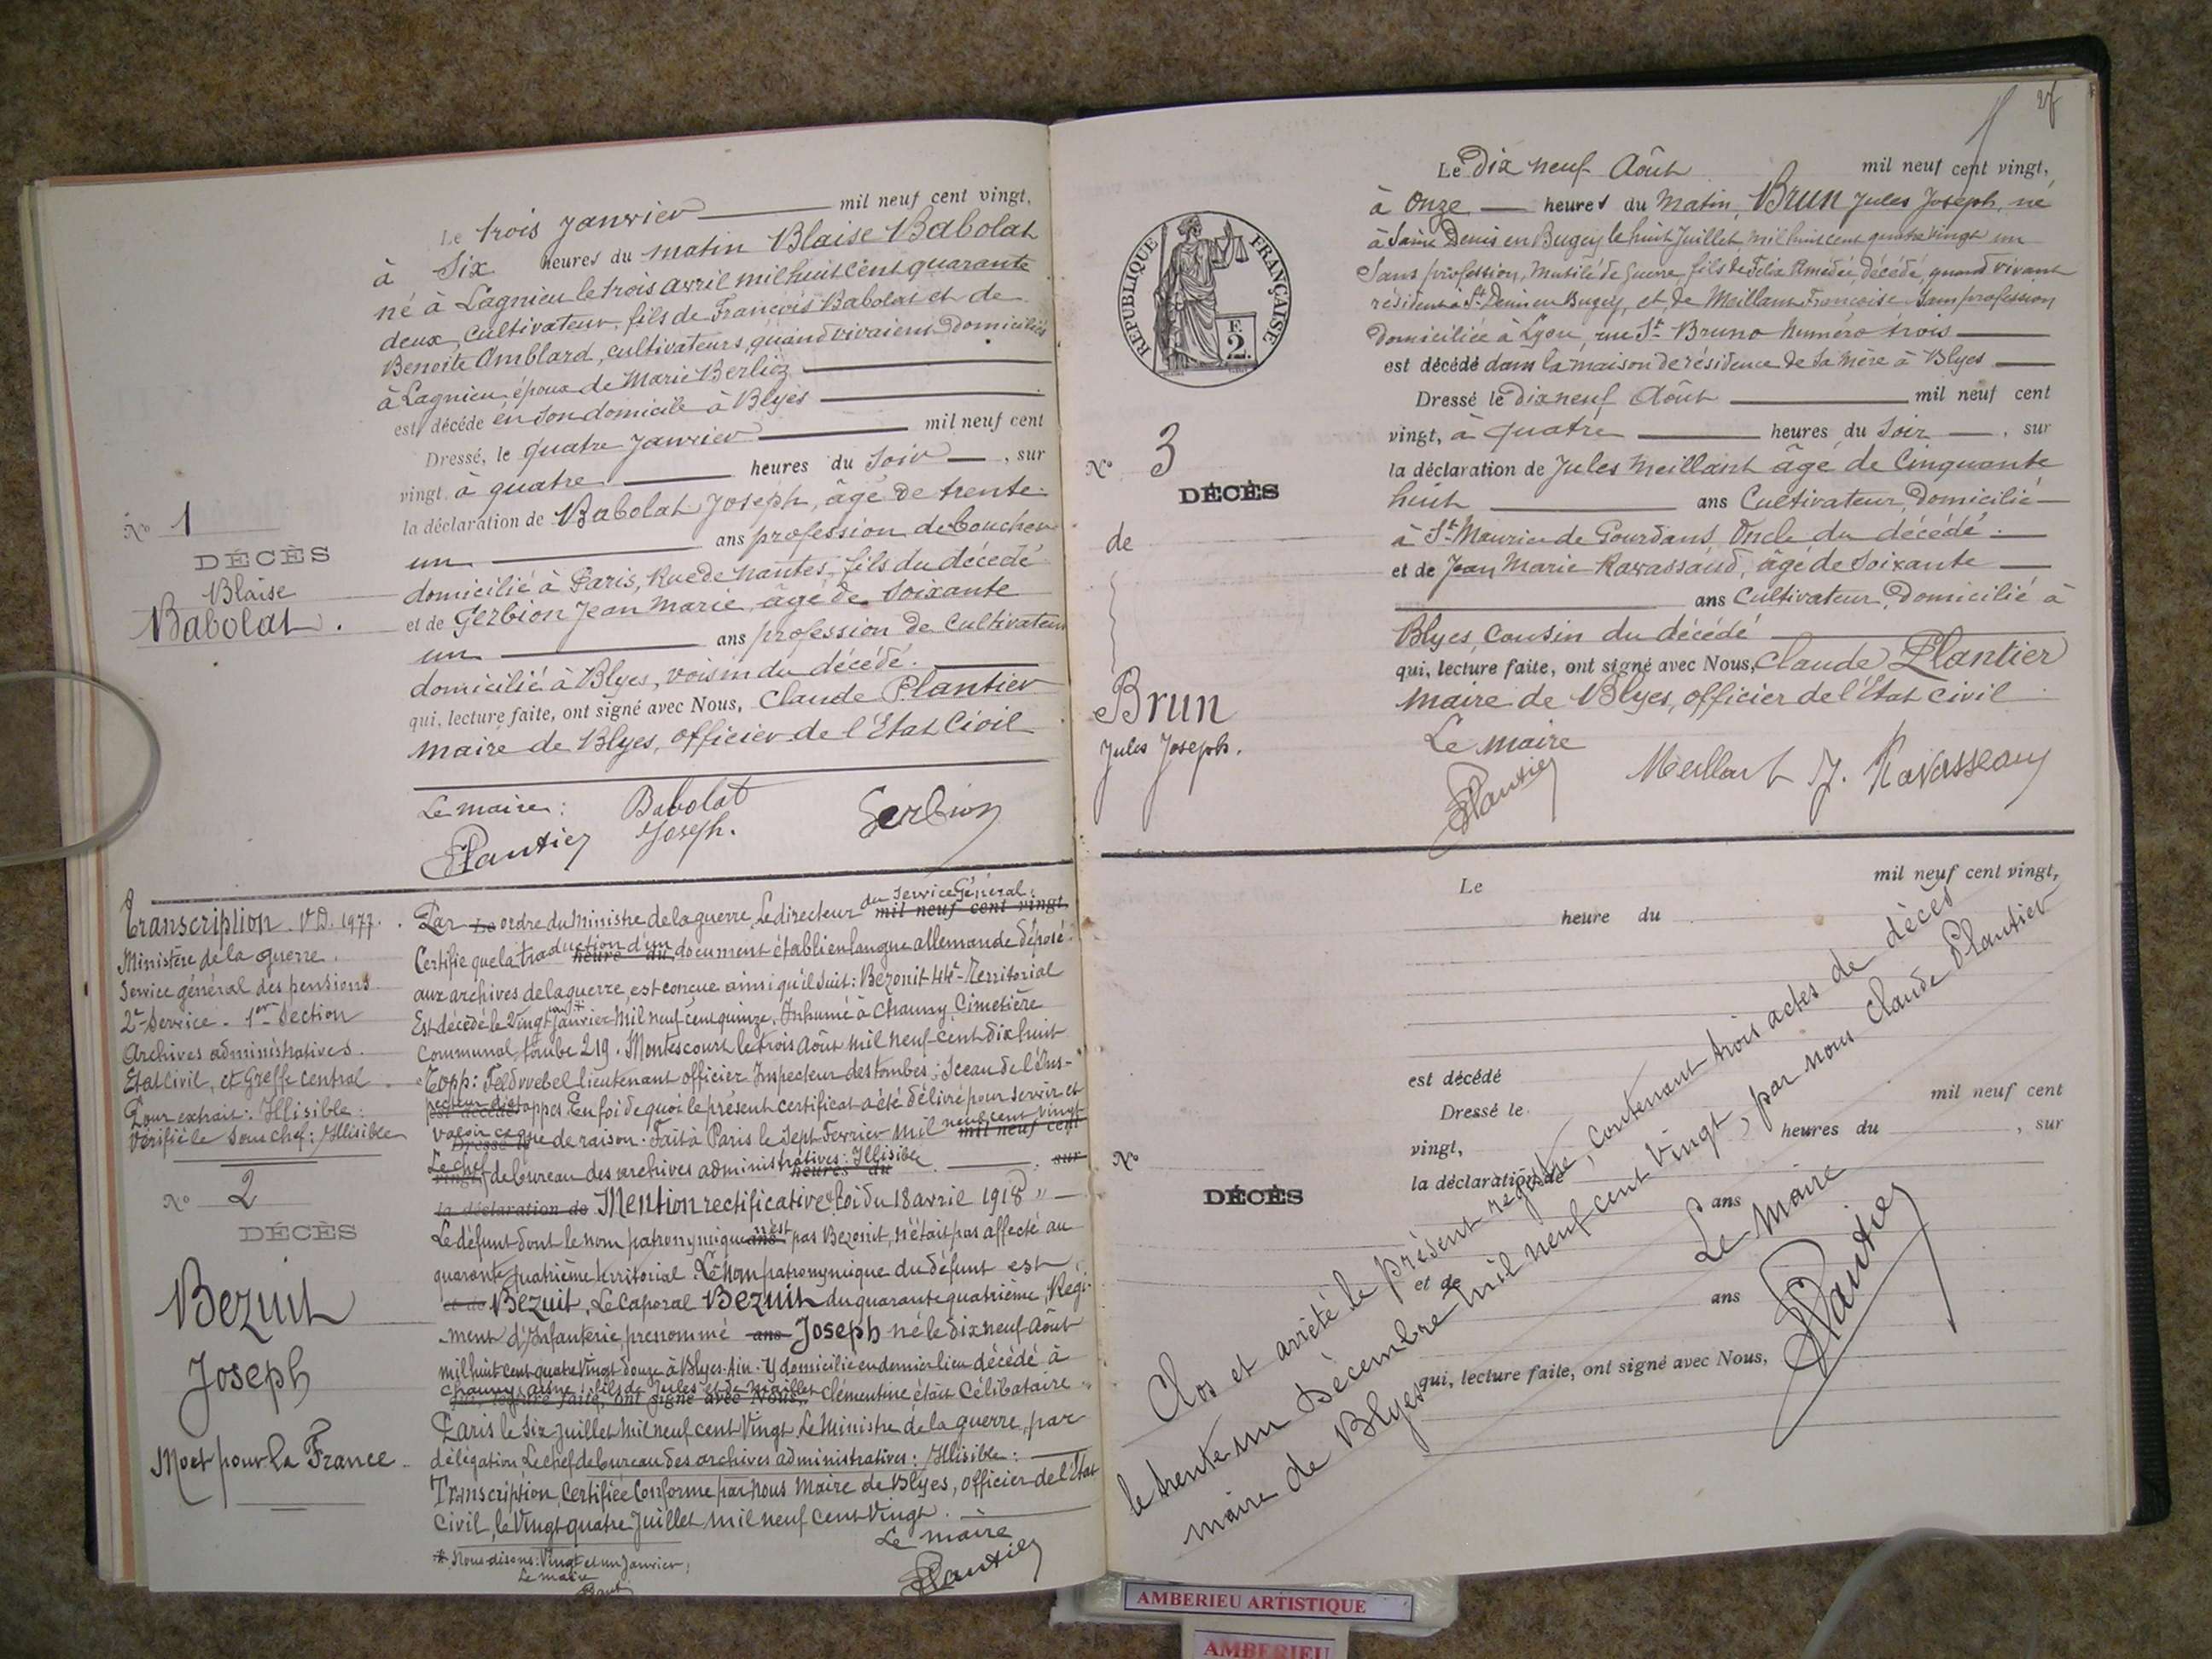 Le trois janvier mil neuf cent vingt,
à Six heures du matin Blaise Babolat
né à Lagnieu le trois avril mil huit cent quarante
deux, cultivateur, fils de François Babolat et de
Benoite Amblard, cultivateurs, quand vivaient domiciliés
à Lagnieu, époux de Marie Berlioz
est décédé en son domicile à Blyes
Dressé, le quatre janvier mil neuf cent
vingt, à quatre heures du Soir, sur
la déclaration de Babolat Joseph, âgé de trente
un ans profession de boucher
domicilié à Paris, Rue de Nantes, fils du décédé
et de Gerbion Jean Marie, âgé de Soixante
un ans profession de Cultivateur
domicilié à Blyes, voisin du décédé.
qui, lecture faite, ont signé avec Nous, Claude Plantier
maire de Blyes, officier de l'Etat Civil
Le maire: Babolat Gerbion
Plantier Joseph.
No 1
DÉCÈS
Blaise
Babolat.
Transcription. V.D. 1977.
Ministère de la guerre.
Service général des pensions
2e Service. 1er Section
Archives administratives.
Etat Civil, et Greffe central
Pour extrait: Illisible:
Vérifié le Sous chef: Illisible
No 2
DÉCÈS
Bezuit
Joseph
Mort pour la France
Par Le ordre du Ministre de la guerre Le directeur du Service Général: mil neuf cent vingt,
Certifie que la traduction d'un heure du document établi en langue allemande déposé
aux archives de la guerre, est conçue ainsi qu'il suit: Bezonit 44e Territorial
Est décédé le Vingt janvier * Mil neuf cent quinze. Inhumé à Chauny Cimetière
Communal, tombe 219. Montescourt le trois Août mil neuf cent dix huit
Topp: Feldwebel lieutenant officier Inspecteur des tombes: Sceau de l'Ins-
pecteur d'étappes est décédé. En foi de quoi le présent certificat a été délivré pour servir et
valoir ce que de raison. Fait à Paris le Sept Fevrier mil neuf cent vingt mil neuf cent
Le chef de bureau des archives administratives: Illisible heures du sur
la déclaration de Mention rectificative Loi du 18 avril 1918
Le défunt dont le nom patronymique n'est ans pas Bezonit, n'était pas affecté au
quarante quatrième territorial. Le nom patronymique du défunt est
et de Bezuit, Le Caporal Bezuit du quarante quatrième Régi-
ment d'Infanterie, prénommé ans Joseph né le dix neuf Août
mil huit cent quatre Vingt douze à Blyes. Ain. Y domicilié en dernier lieu décédé à
Chauny, aisne; fils de Jules et de Miaillet qui, lecture faite, ont signé avec Nous, Clémentine était Célibataire
Paris le Six juillet mil neuf cent Vingt Le Ministre de la guerre, par
délégation Le chef de bureau des archives administratives: Illisible:
Transcription, Certifiée Conforme par nous Maire de Blyes, officier de l'Etat
Civil, le Vingt quatre juillet mil neuf cent Vingt.
Le maire
Plantier
* Nous disons: Vingt et un Janvier;
Le maire
RÉPUBLIQUE FRANÇAISE
F.
2.
No 3
DÉCÈS
de
Brun
Jules Joseph.
Le Dix neuf Août mil neuf cent vingt,
à Onze heures du Matin, Brun Jules Joseph, né
à Saint Denis en Bugey le huit Juillet mil huit cent quatre vingt un
Sans profession, Mutilé de Guerre, fils de Félix Amédée, décédé, quand vivant
résident à St Denis en Bugey, et de Meillant Françoise Sans profession
domiciliée à Lyon, rue St Bruno Numéro trois
est décédé dans la maison de résidence de Sa Mère à Blyes
Dressé le dix neuf Août mil neuf cent
vingt, à quatre heures du Soir, sur
la déclaration de Jules Meillant âgé de Cinquante
huit ans Cultivateur, Domicilié
à St Maurice de Gourdans, Oncle du décédé.
et de Jean Marie Ravassaud, âgé de Soixante
ans Cultivateur, Domicilié à
Blyes, Cousin du décédé
qui, lecture faite, ont signé avec Nous, Claude Plantier
maire de Blyes, officier de l'Etat Civil
Le maire
Plantier Meillant J. Ravasseau
No
DÉCÈS
Le mil neuf cent vingt,
heure du
est décédé
Dressé le mil neuf cent
vingt, heures du , sur
la déclaration de
ans
et de
ans
qui, lecture faite, ont signé avec Nous,
Clos et arrêté le présent registre, contenant trois actes de décès
le trente un Décembre mil neuf cent vingt, par nous Claude Plantier
maire de Blyes
Le Maire
Plantier
AMBERIEU ARTISTIQUE
AMBERIEU